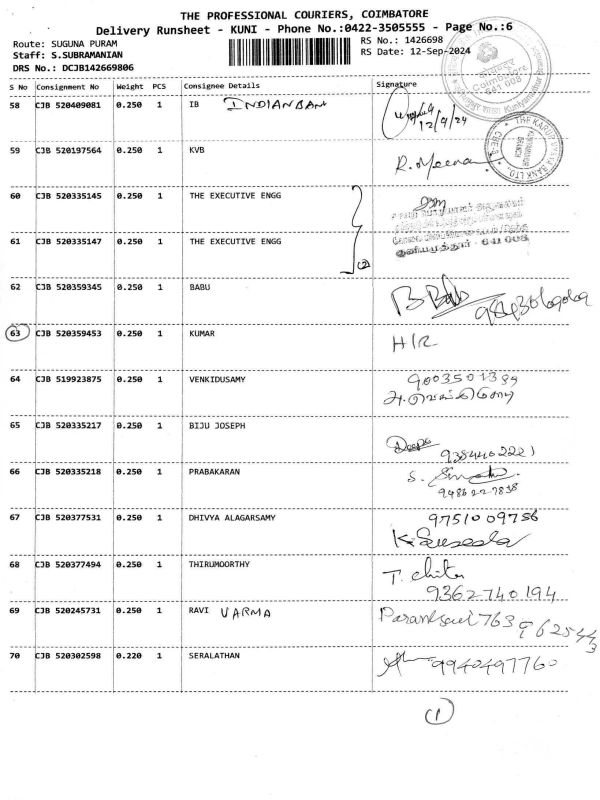 THE PROFESSIONAL COURIERS, COIMBATORE
Delivery Runsheet - KUNI - Phone No.:0422-3505555 - Page No.:6
Route: SUGUNA PURAM
RS No.: 1426698
Staff: S.SUBRAMANIAN
RS Date: 12-Sep-2024
DRS No.: DCJB142669806
S No Consignment No Weight PCS Consignee Details Signature
58 CJB 520409081 0.250 1 IB INDIAN BANK
12/9/24
59 CJB 520197564 0.250 1 KVB
R. Meena
THE KARUR VYSYA BANK LTD.
60 CJB 520335145 0.250 1 THE EXECUTIVE ENGG
61 CJB 520335147 0.250 1 THE EXECUTIVE ENGG
குனியமுத்தூர் - 641 008
(2)
62 CJB 520359345 0.250 1 BABU
63 CJB 520359453 0.250 1 KUMAR
H/R
64 CJB 519923875 0.250 1 VENKIDUSAMY
65 CJB 520335217 0.250 1 BIJU JOSEPH
Deepa
9384402221
66 CJB 520335218 0.250 1 PRABAKARAN
67 CJB 520377531 0.250 1 DHIVYA ALAGARSAMY 9751009756
K. Suseela
68 CJB 520377494 0.250 1 THIRUMOORTHY
T. Chitra
9362740194
69 CJB 520245731 0.250 1 RAVI VARMA
70 CJB 520302598 0.220 1 SERALATHAN 9940497760
(1)